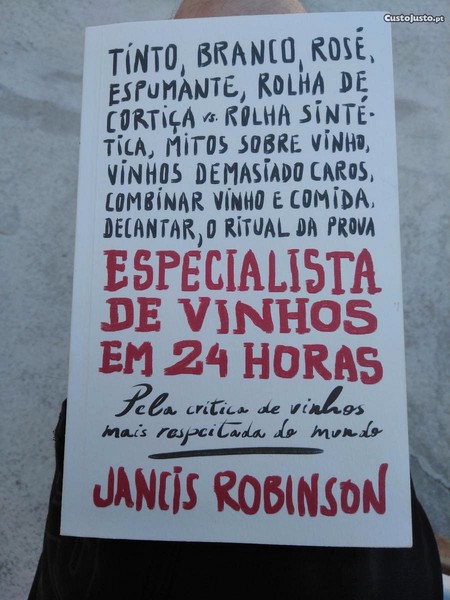 CustoJusto.pt
TINTO, BRANCO, ROSÉ,
ESPUMANTE, ROLHA DE
CORTIÇA vs. ROLHA SINTÉ-
TICA, MITOS SOBRE VINHO,
VINHOS DEMASIADO CAROS,
COMBINAR VINHO E COMIDA,
DECANTAR, O RITUAL DA PROVA
ESPECIALISTA
DE VINHOS
EM 24 HORAS
Pela crítica de vinhos
mais respeitada do mundo
JANCIS ROBINSON